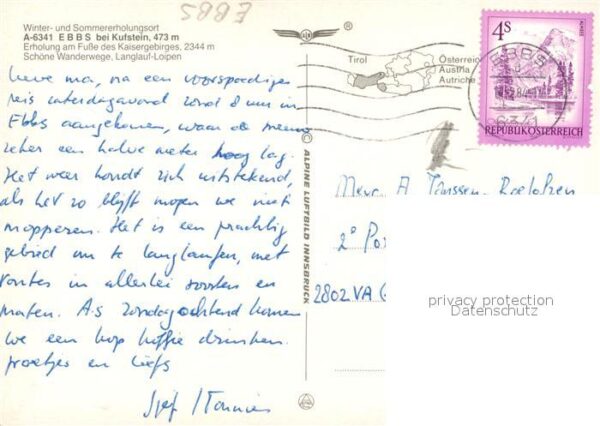 EBBS
Winter- und Sommererholungsort
A-6341 EBBS bei Kufstein, 473 m
Erholung am Fuße des Kaisergebirges, 2344 m
Schöne Wanderwege, Langlauf-Loipen
Lieve ma, na een voorspoedige
reis zaterdagavond rond 8 uur in
Ebbs aangekomen, waar de sneeuw
zeker een halve meter hoog lag.
Het weer houdt zich uitstekend,
als het zo blijft mogen we niet
mopperen. Het is een prachtig
gebied om te langlaufen, met
routes in allerlei soorten en
maten. A.s. zondagochtend komen
we een kop koffie drinken.
groetjes en liefs
Sjef /
ALPINE LUFTBILD INNSBRUCK
Tirol
Österreich
Austria
Autriche
4S
REPUBLIK ÖSTERREICH
EBBS
6341
Mevr. A Janssen-Roelofzen
2e Po
2802 VA G
privacy protection
Datenschutz